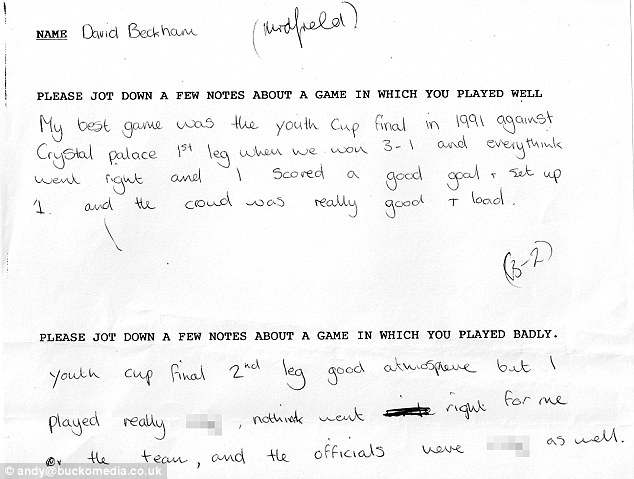 NAME David Beckham (Midfield)
PLEASE JOT DOWN A FEW NOTES ABOUT A GAME IN WHICH YOU PLAYED WELL
My best game was the youth Cup final in 1991 against
Crystal palace 1st leg when we won 3-1 and everythink
went right and I scored a good goal + set up
1. and the croud was really good + load.
(3-2)
PLEASE JOT DOWN A FEW NOTES ABOUT A GAME IN WHICH YOU PLAYED BADLY.
youth cup final 2nd leg good atmospere but I
played really , nothink went right for me
or the team, and the officials were as well.
© andy@buckomedia.co.uk